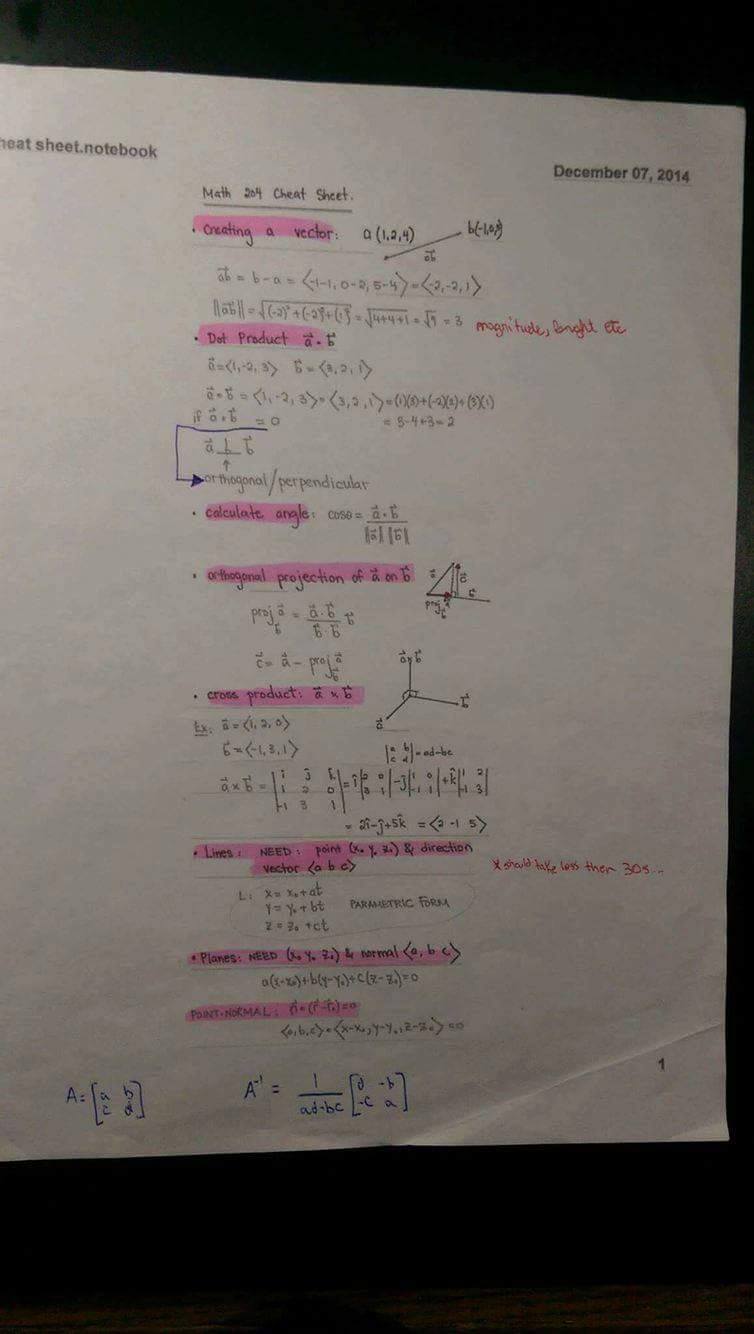 heat sheet.notebook
December 07, 2014
Math 204 Cheat Sheet.
• Creating a vector: a(1,2,4) b(-1,0,5)
a⃗b
a⃗b = b-a = ⟨-1-1, 0-2, 5-4⟩=⟨-2,-2,1⟩
||a⃗b|| = √(-2)²+(-2)²+(1)² = √4+4+1 = √9 = 3 magnitude, lenght etc
• Dot Product a⃗ • b⃗
a⃗=⟨1,-2,3⟩ b⃗ = ⟨3,2,1⟩
a⃗•b⃗ = ⟨1,-2,3⟩•⟨3,2,1⟩=(1)(3)+(-2)(2)+(3)(1)
if a⃗•b⃗ = 0 = 3-4+3=2
a⃗ ⊥ b⃗
orthogonal/perpendicular
• calculate angle: cosθ = a⃗•b⃗ / ||a⃗|| ||b⃗||
• orthogonal projection of a⃗ on b⃗ a⃗ c⃗ b⃗
proj b⃗ a⃗ = a⃗•b⃗ / b⃗•b⃗ b⃗
c⃗ = a⃗ - proj b⃗ a⃗
a⃗×b⃗
• cross product: a⃗ × b⃗ b⃗
a⃗
Ex: a⃗ = ⟨1,2,0⟩
b⃗ = ⟨-1,3,1⟩ |a b; c d| = ad-bc
a⃗×b⃗ = |i j k; 1 2 0; -1 3 1| = î|2 0; 3 1| -ĵ|1 0; -1 1| +k̂|1 2; -1 3|
= 2î-ĵ+5k̂ = ⟨2 -1 5⟩
• Lines: NEED: point (x₀ y₀ z₀) & direction
vector ⟨a b c⟩ * should take less then 30s...
L: x = x₀+at
y = y₀+bt PARAMETRIC FORM
z = z₀+ct
• Planes: NEED (x₀ y₀ z₀) & normal ⟨a, b c⟩
a(x-x₀)+b(y-y₀)+c(z-z₀)=0
POINT-NORMAL: n⃗•(r⃗-r⃗₀)=0
⟨a,b,c⟩•⟨x-x₀,y-y₀,z-z₀⟩=0
1
A = [a b; c d] A⁻¹ = 1/ad-bc [d -b; -c a]